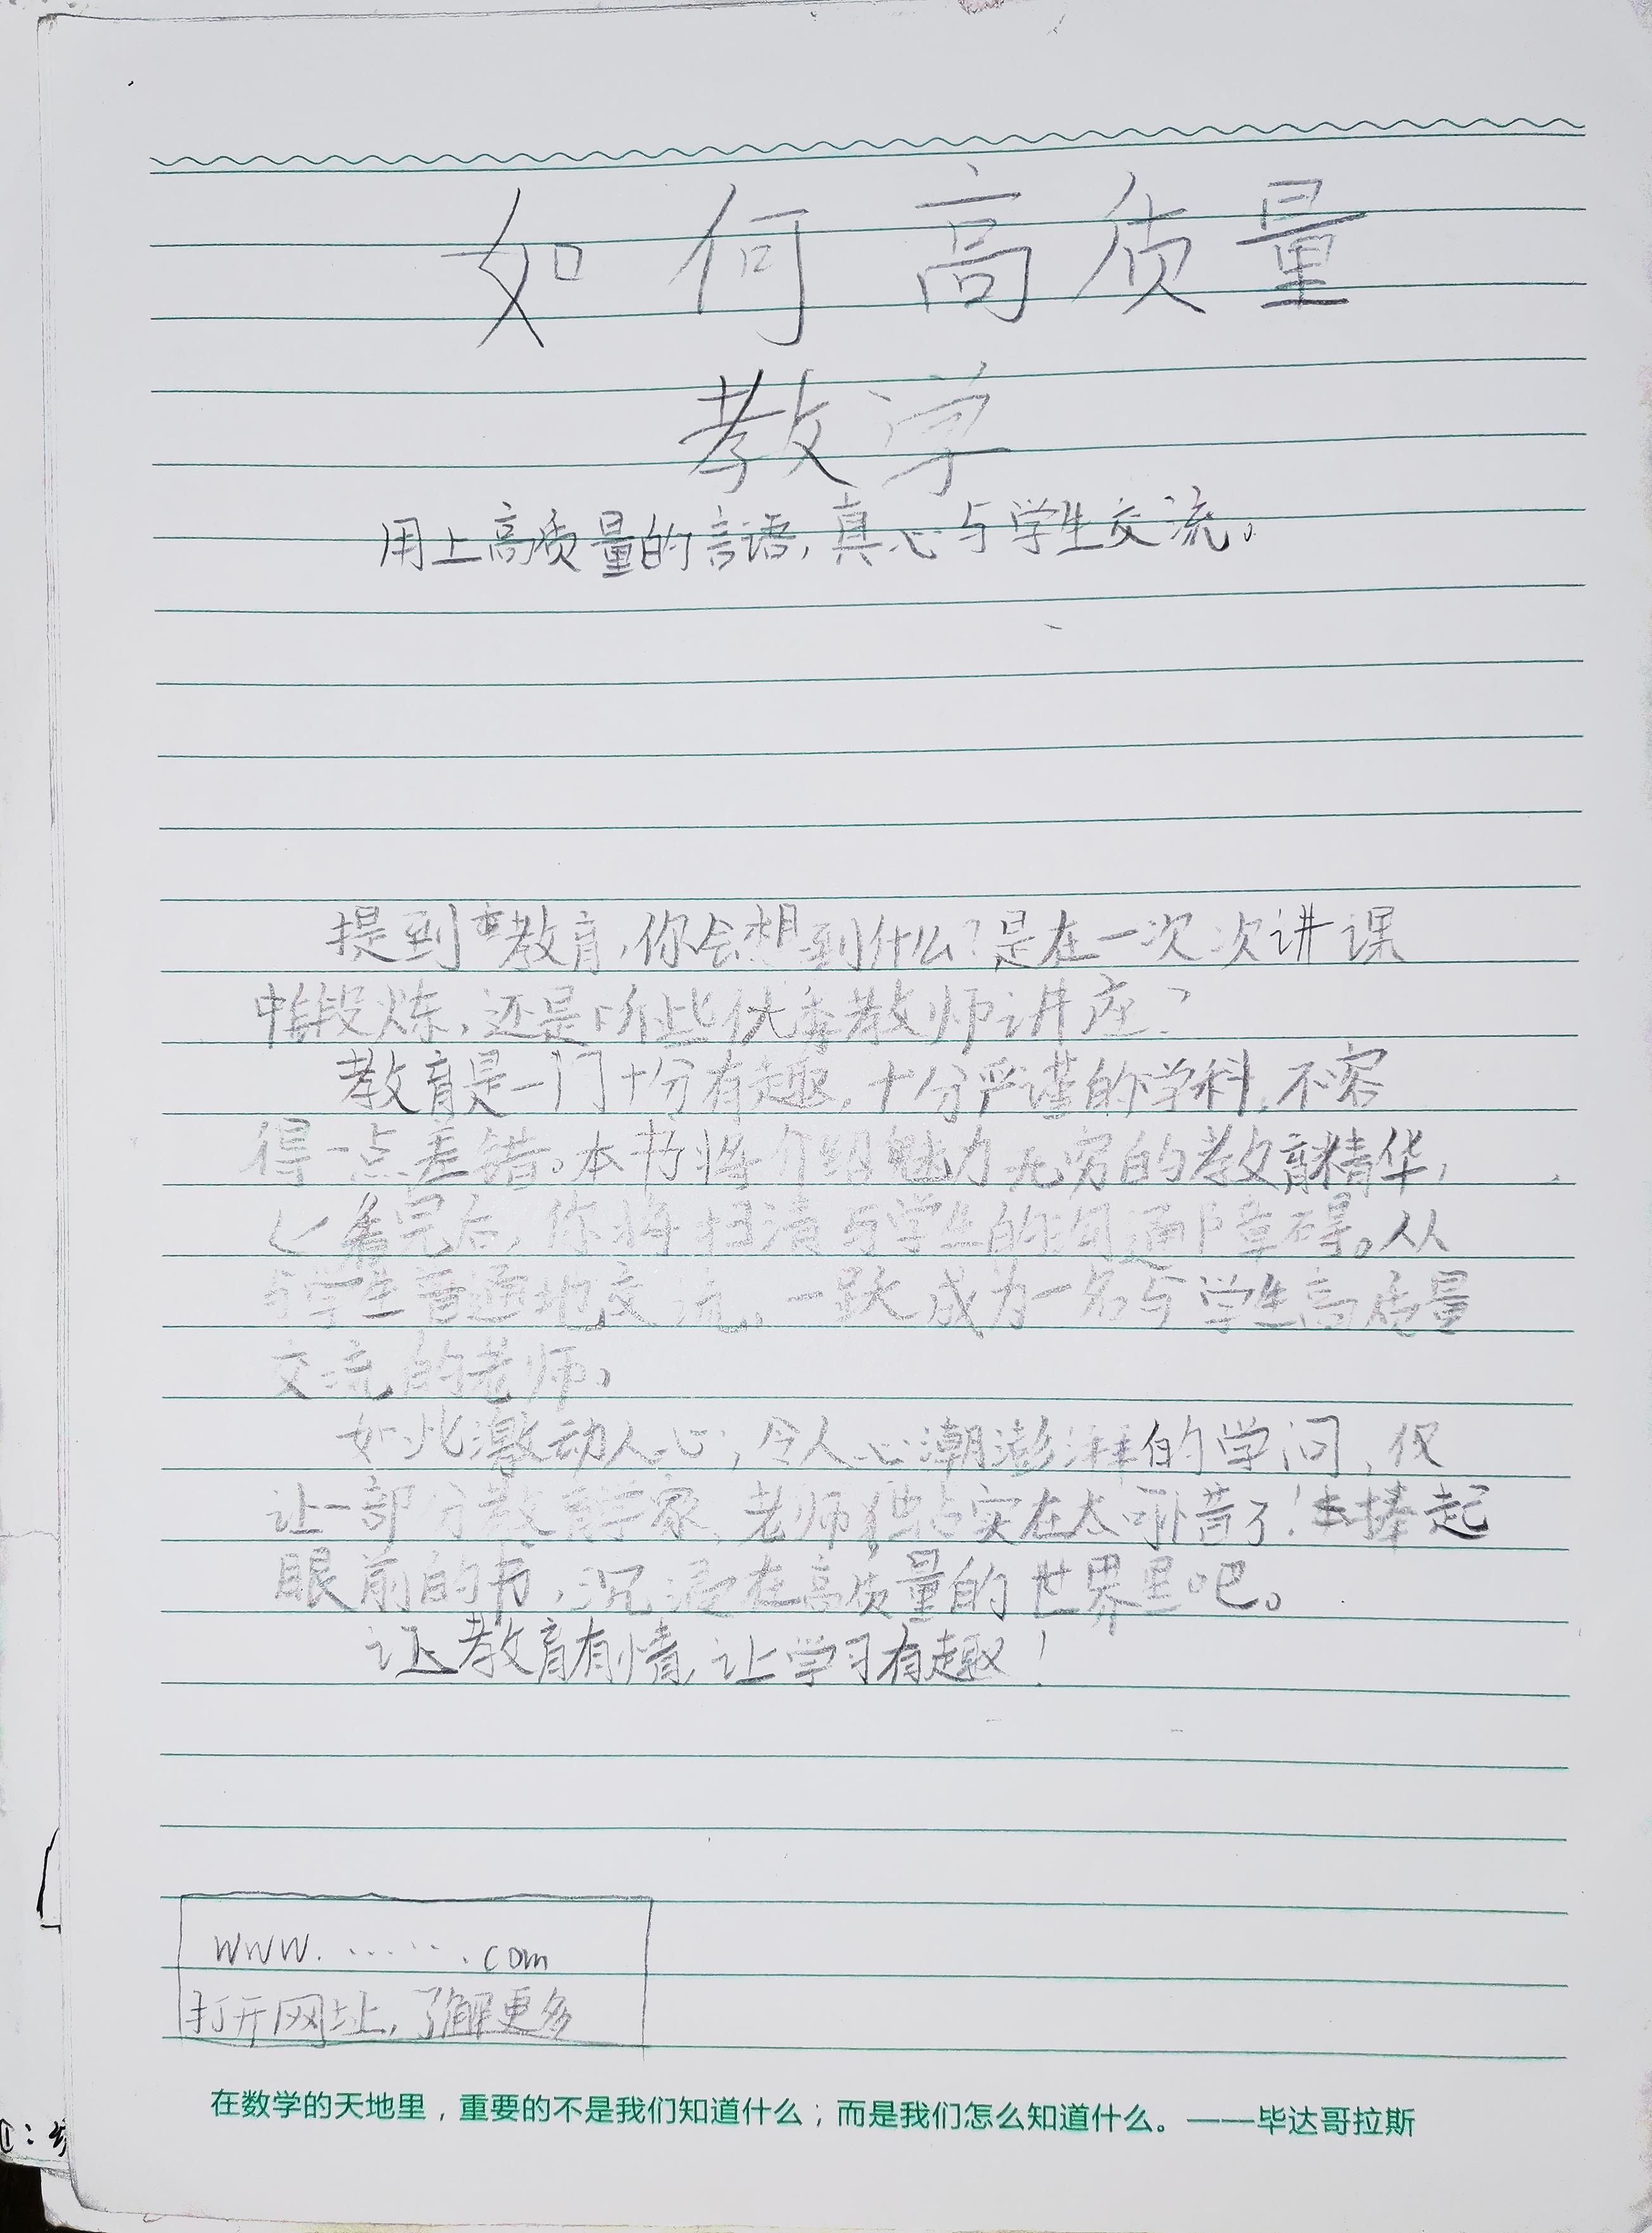 如何高质量
教学
用上高质量的言语,真心与学生交流。
提到教育,你会想到什么?是在一次次讲课
中锻炼,还是听些优秀教师讲座?
教育是一门十分有趣,十分严谨的学科,不容
得一点差错。本书将介绍魅力无穷的教育精华,
看完后,你将扫清与学生的沟通障碍。从
与学生普通地交流,一跃成为一名与学生高质量
交流的老师。
如此激动人心,令人心潮澎湃的学问,仅
让一部分教育学家、老师独占实在太可惜了!捧起
眼前的书,沉浸在高质量的世界里吧。
让教育有情,让学习有趣!
www. ······ .com
打开网址,了解更多
在数学的天地里,重要的不是我们知道什么;而是我们怎么知道什么。——毕达哥拉斯